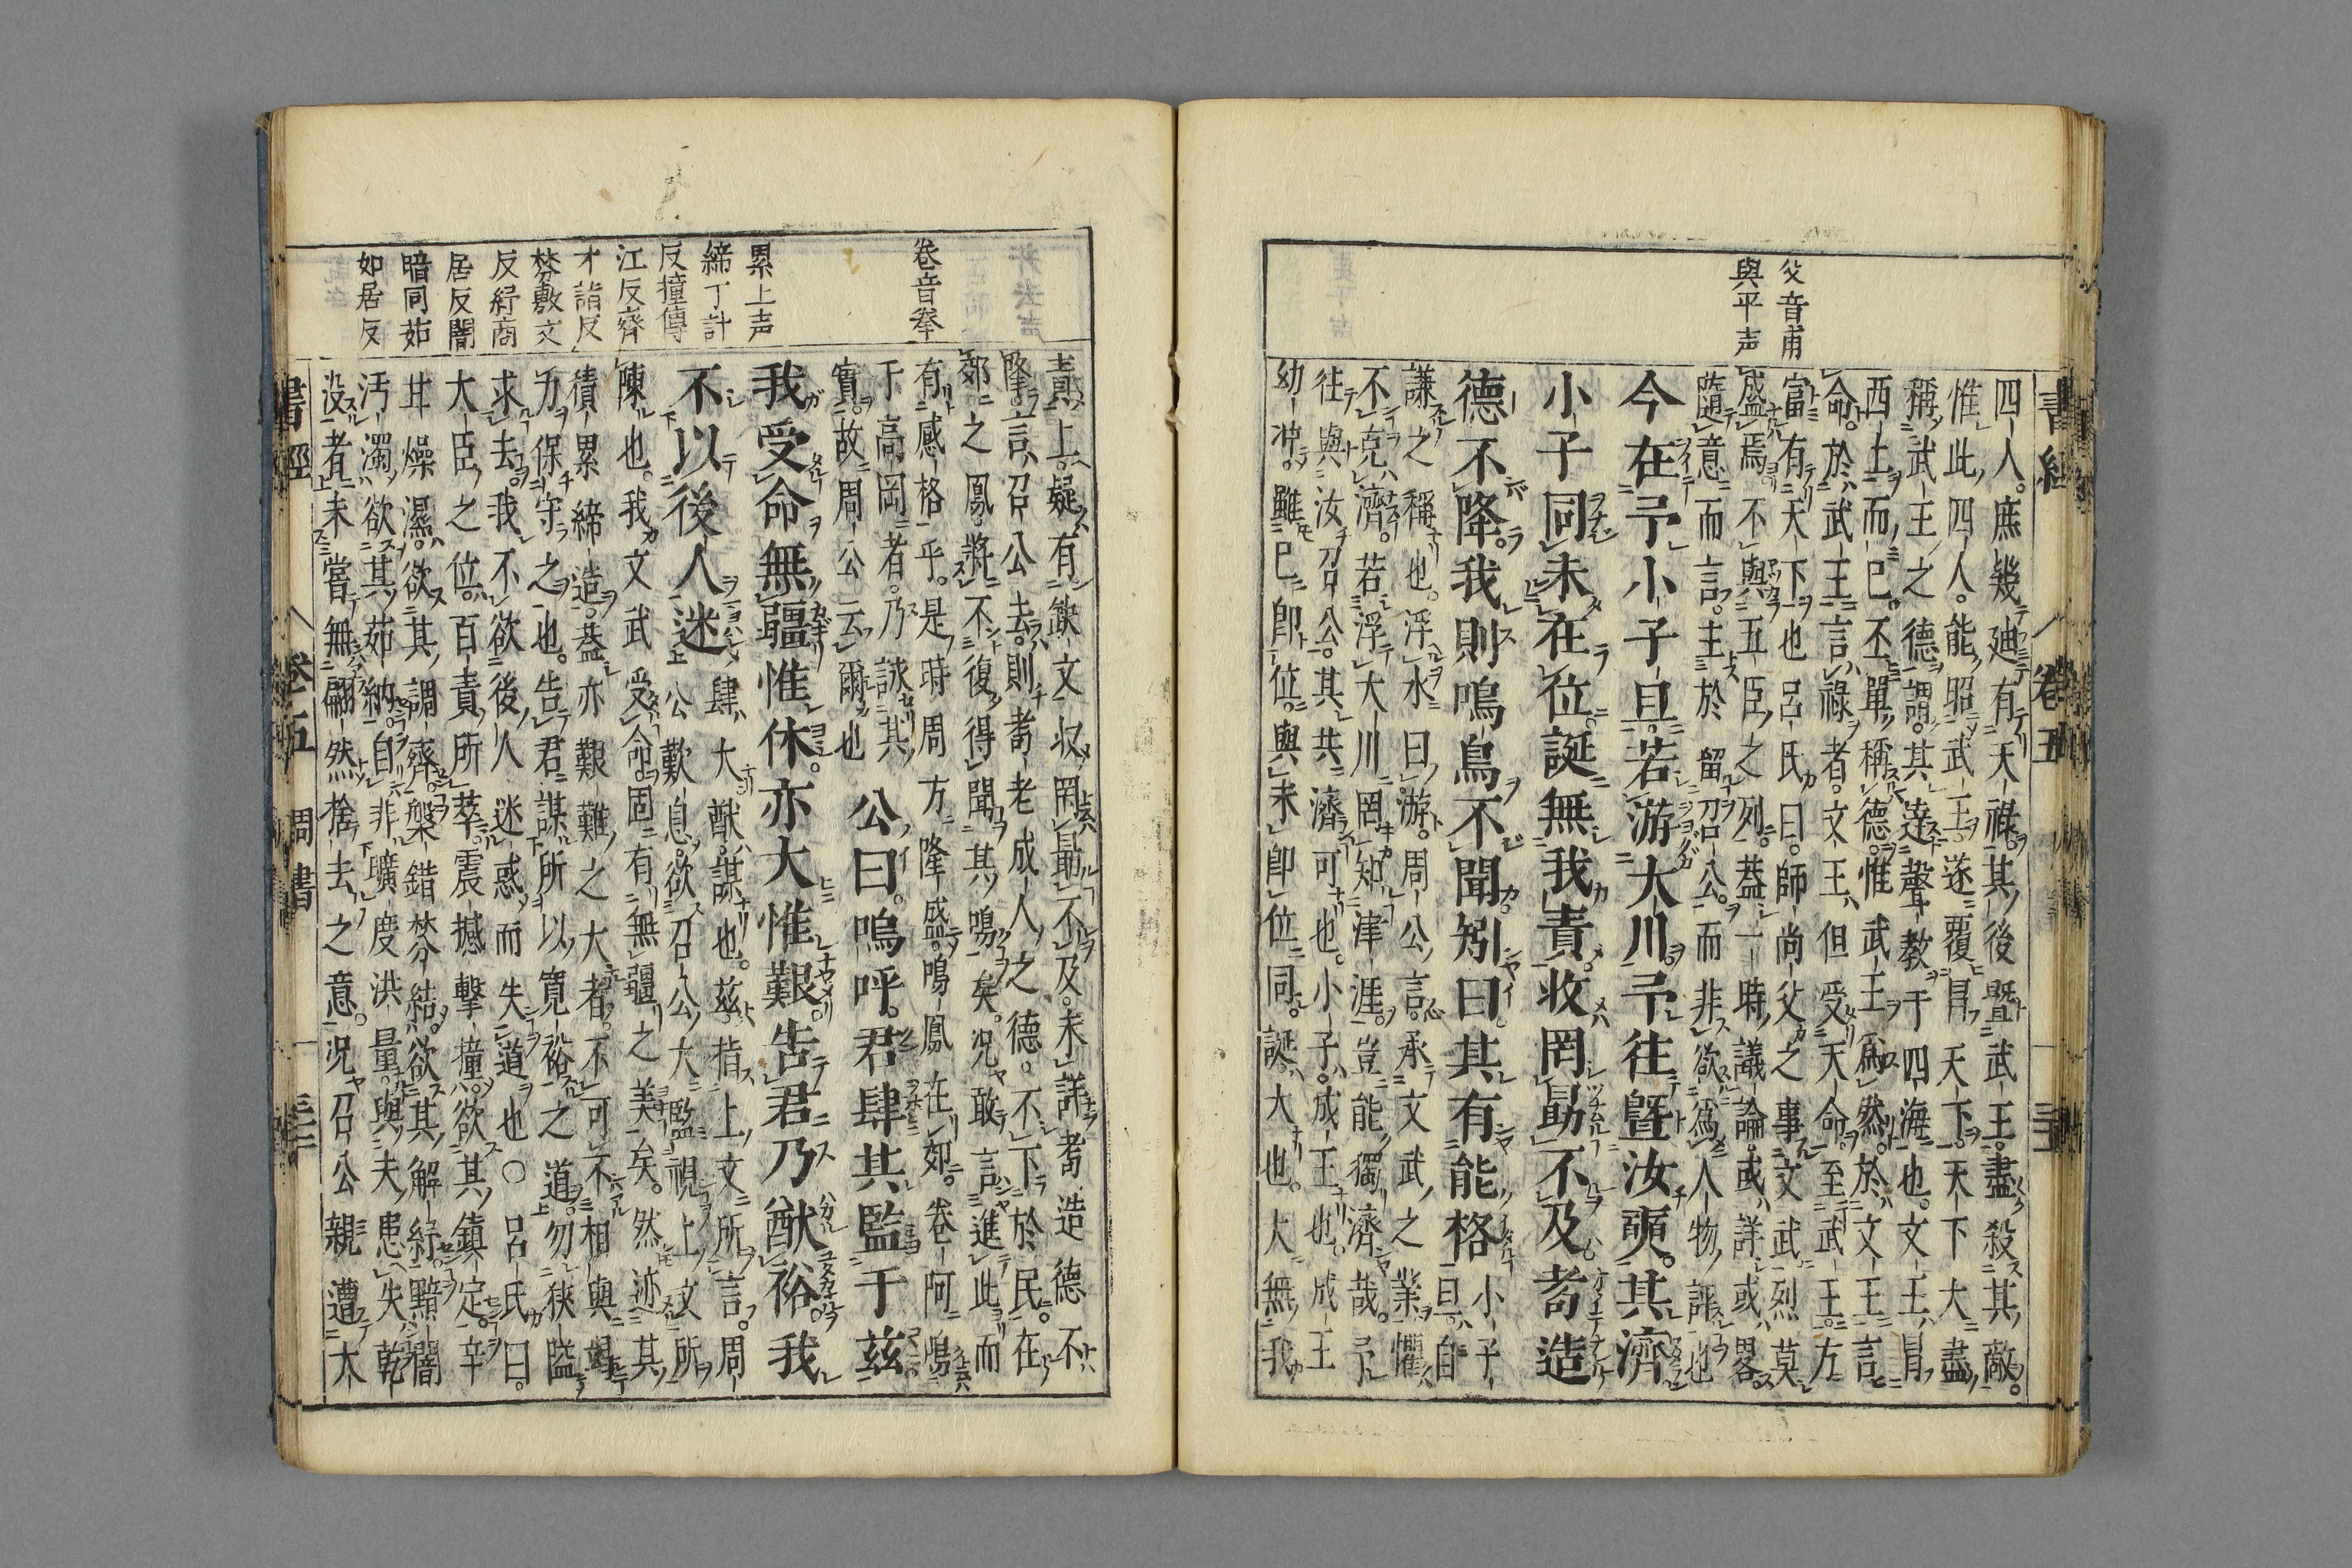 父音甫
與平声
四人。庶幾迪有天祿。其後暨武王。盡殺其敵。
惟此四人。能昭武王。遂覆冒天下。天下大盡
稱武王之德。謂其達聲教于四海也。文王冒
西土而已。丕單稱德。惟武王爲然。於文王言
命。於武王言祿者。文王但受天命。至武王方
富有天下也呂氏曰。師尚父之事文武。烈莫
盛焉不與五臣之列。蓋一時議論。或詳或畧。
隨意而言。主於留召公。而非欲爲人物評也
今在予小子旦。若游大川予往曁汝奭。其濟
小子同未在位。誕無我責。收罔勗不及耇造
德不降。我則鳴鳥不聞矧曰。其有能格小子
旦。自
謙之稱也。浮水曰游。周公言。承文武之業懼
不克濟。若浮大川罔知津涯。豈能獨濟哉。予
往與汝召公。其共濟可也。小子。成王也。成王
幼冲。雖已即位。與未即位同。誕大也。大無我
書經 卷五 三十一
卷音拳
累上声
締丁計
反撞傳
江反齊
才詣反
棼敷文
反紓商
居反闇
暗同茹
如居反
責上。疑有缺文收罔勗不及。未詳耇造德不
降。言召公去。則耇老成人之德。不下於民。在
郊之鳳。將不復得聞其鳴矣。況敢言進此而
有感格乎。是時周方隆盛。鳴鳳在郊。卷阿鳴
于高岡者。乃詠其
實。故周公云爾也公曰。嗚呼。君肆其監于茲
我受命無疆惟休。亦大惟艱。告君乃猷裕我
不以後人迷肆大猷。謀也。茲指上文所言。周
公歎息。欲召公大監視上文所
陳也。我文武受命。固有無疆之美矣。然迹其
積累締造。蓋亦艱難之大者。不可不相與竭
力保守之也。告君謀所以寛裕之道。勿狹隘
求去。我不欲後人迷惑而失道也〇呂氏曰。
大臣之位。百責所萃。震撼擊撞。欲其鎮定。辛
甘燥濕。欲其調齊。槃錯棼結。欲其解紓。黯闇
汚濁。欲其茹納。自非曠度洪量。與夫患失乾
没者未嘗無翩然捨去之意。況召公親遭大
書經 卷五 周書 三十二